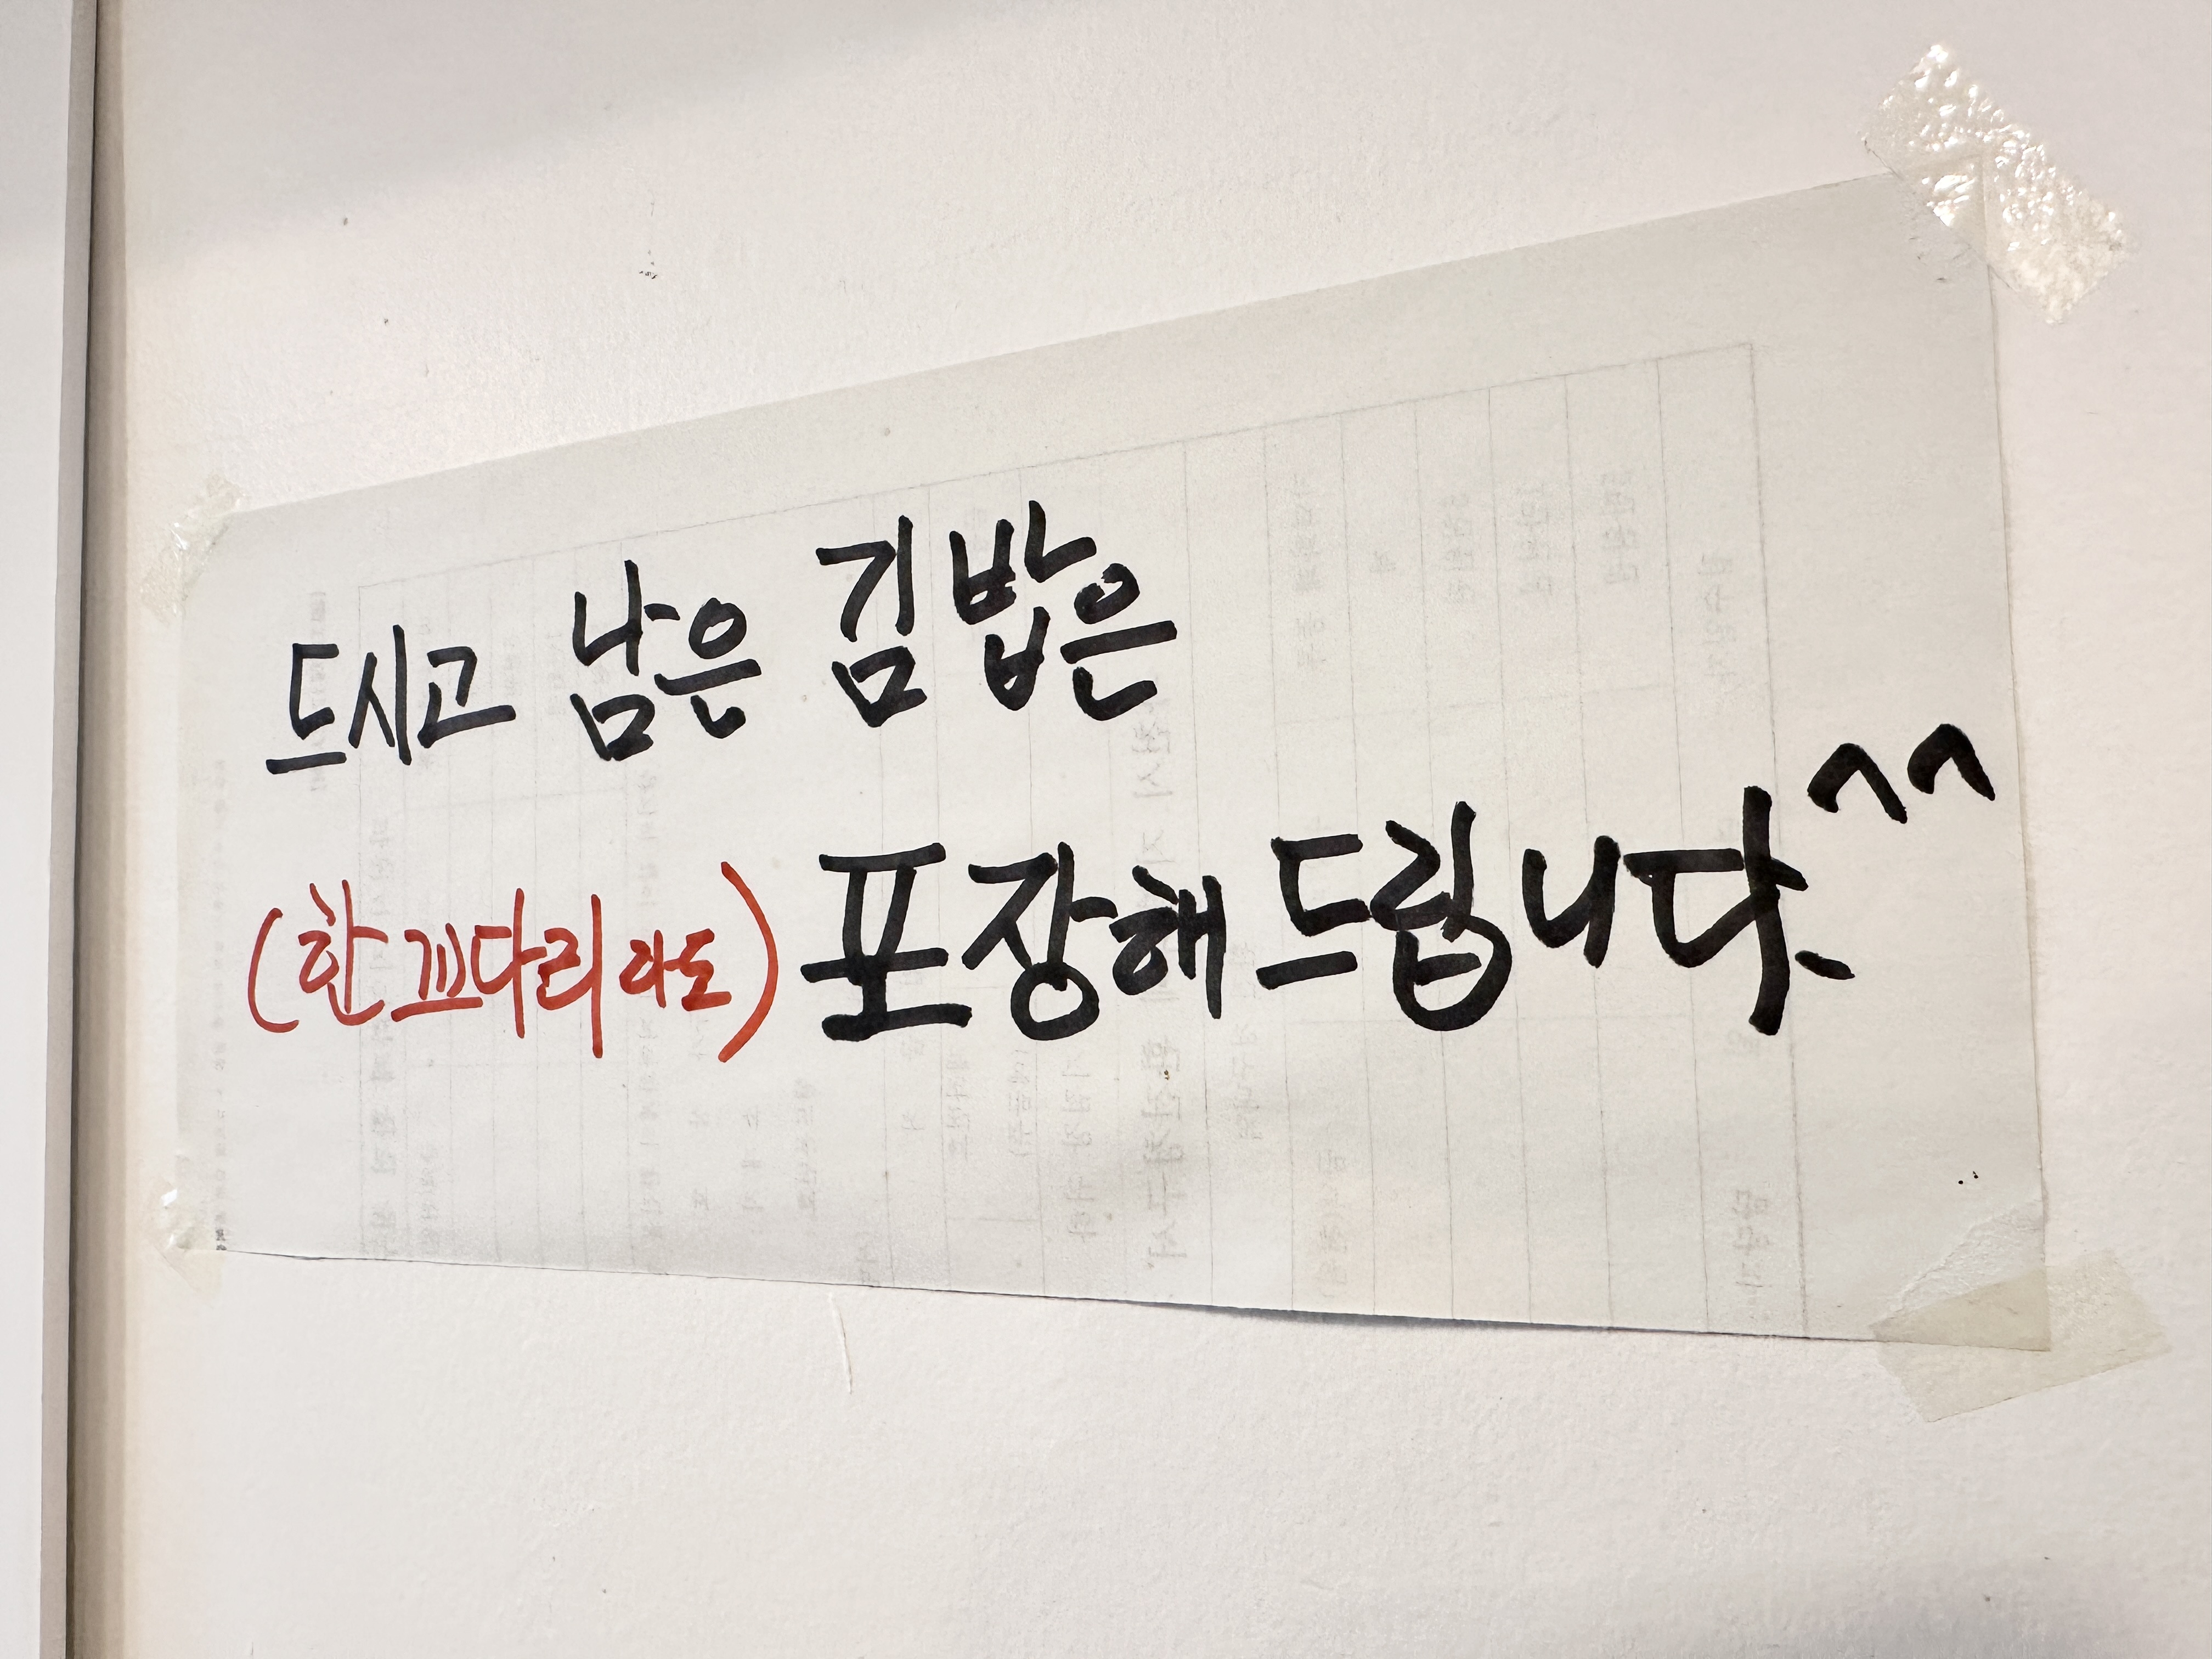 드시고 남은 김밥은
(한 꼬다리라도) 포장해 드립니다. ^^